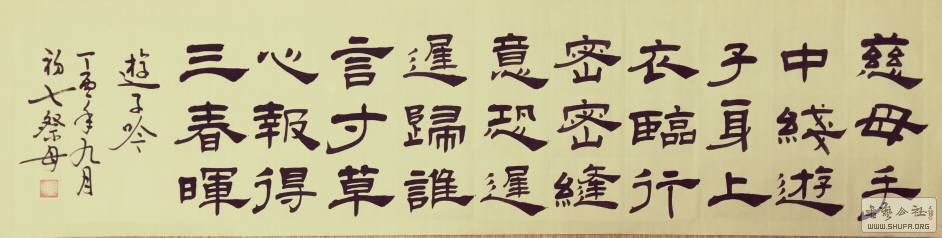 慈母手
中綫遊
子身上
衣臨行
密密縫
意恐遲
遲歸誰
言寸草
心報得
三春暉
遊子吟
丁酉年九月
初七祭母
書藝公社
WWW.SHUFA.ORG